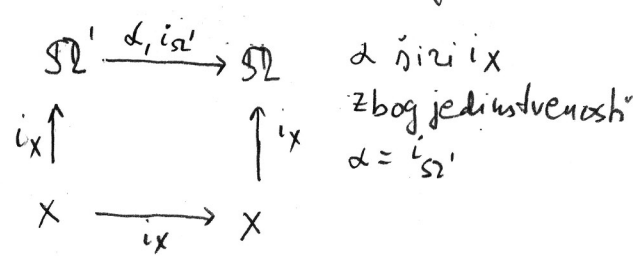 Ω' α, i_Ω' Ω
i_X i_X
X i_X X
α širi i_X
zbog jedinstvenosti
α = i_Ω'